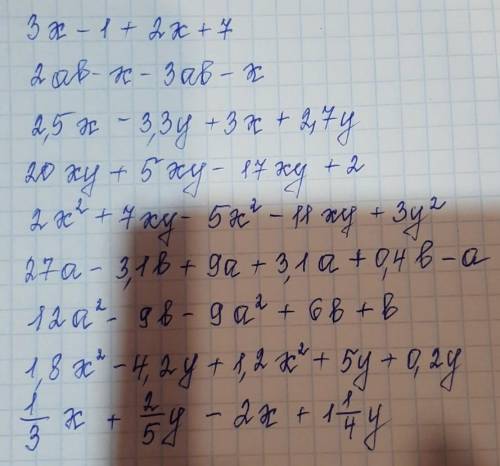 3x - 1 + 2x + 7
2ab - x - 3ab - x
2,5x - 3,3y + 3x + 2,7y
20xy + 5xy - 17xy + 2
2x² + 7xy - 5x² - 11xy + 3y²
27a - 3,1b + 9a + 3,1a + 0,4b - a
12a² - 9b - 9a² + 6b + b
1,8x² - 4,2y + 1,2x² + 5y + 0,2y
1/3 x + 2/5 y - 2x + 1 1/4 y